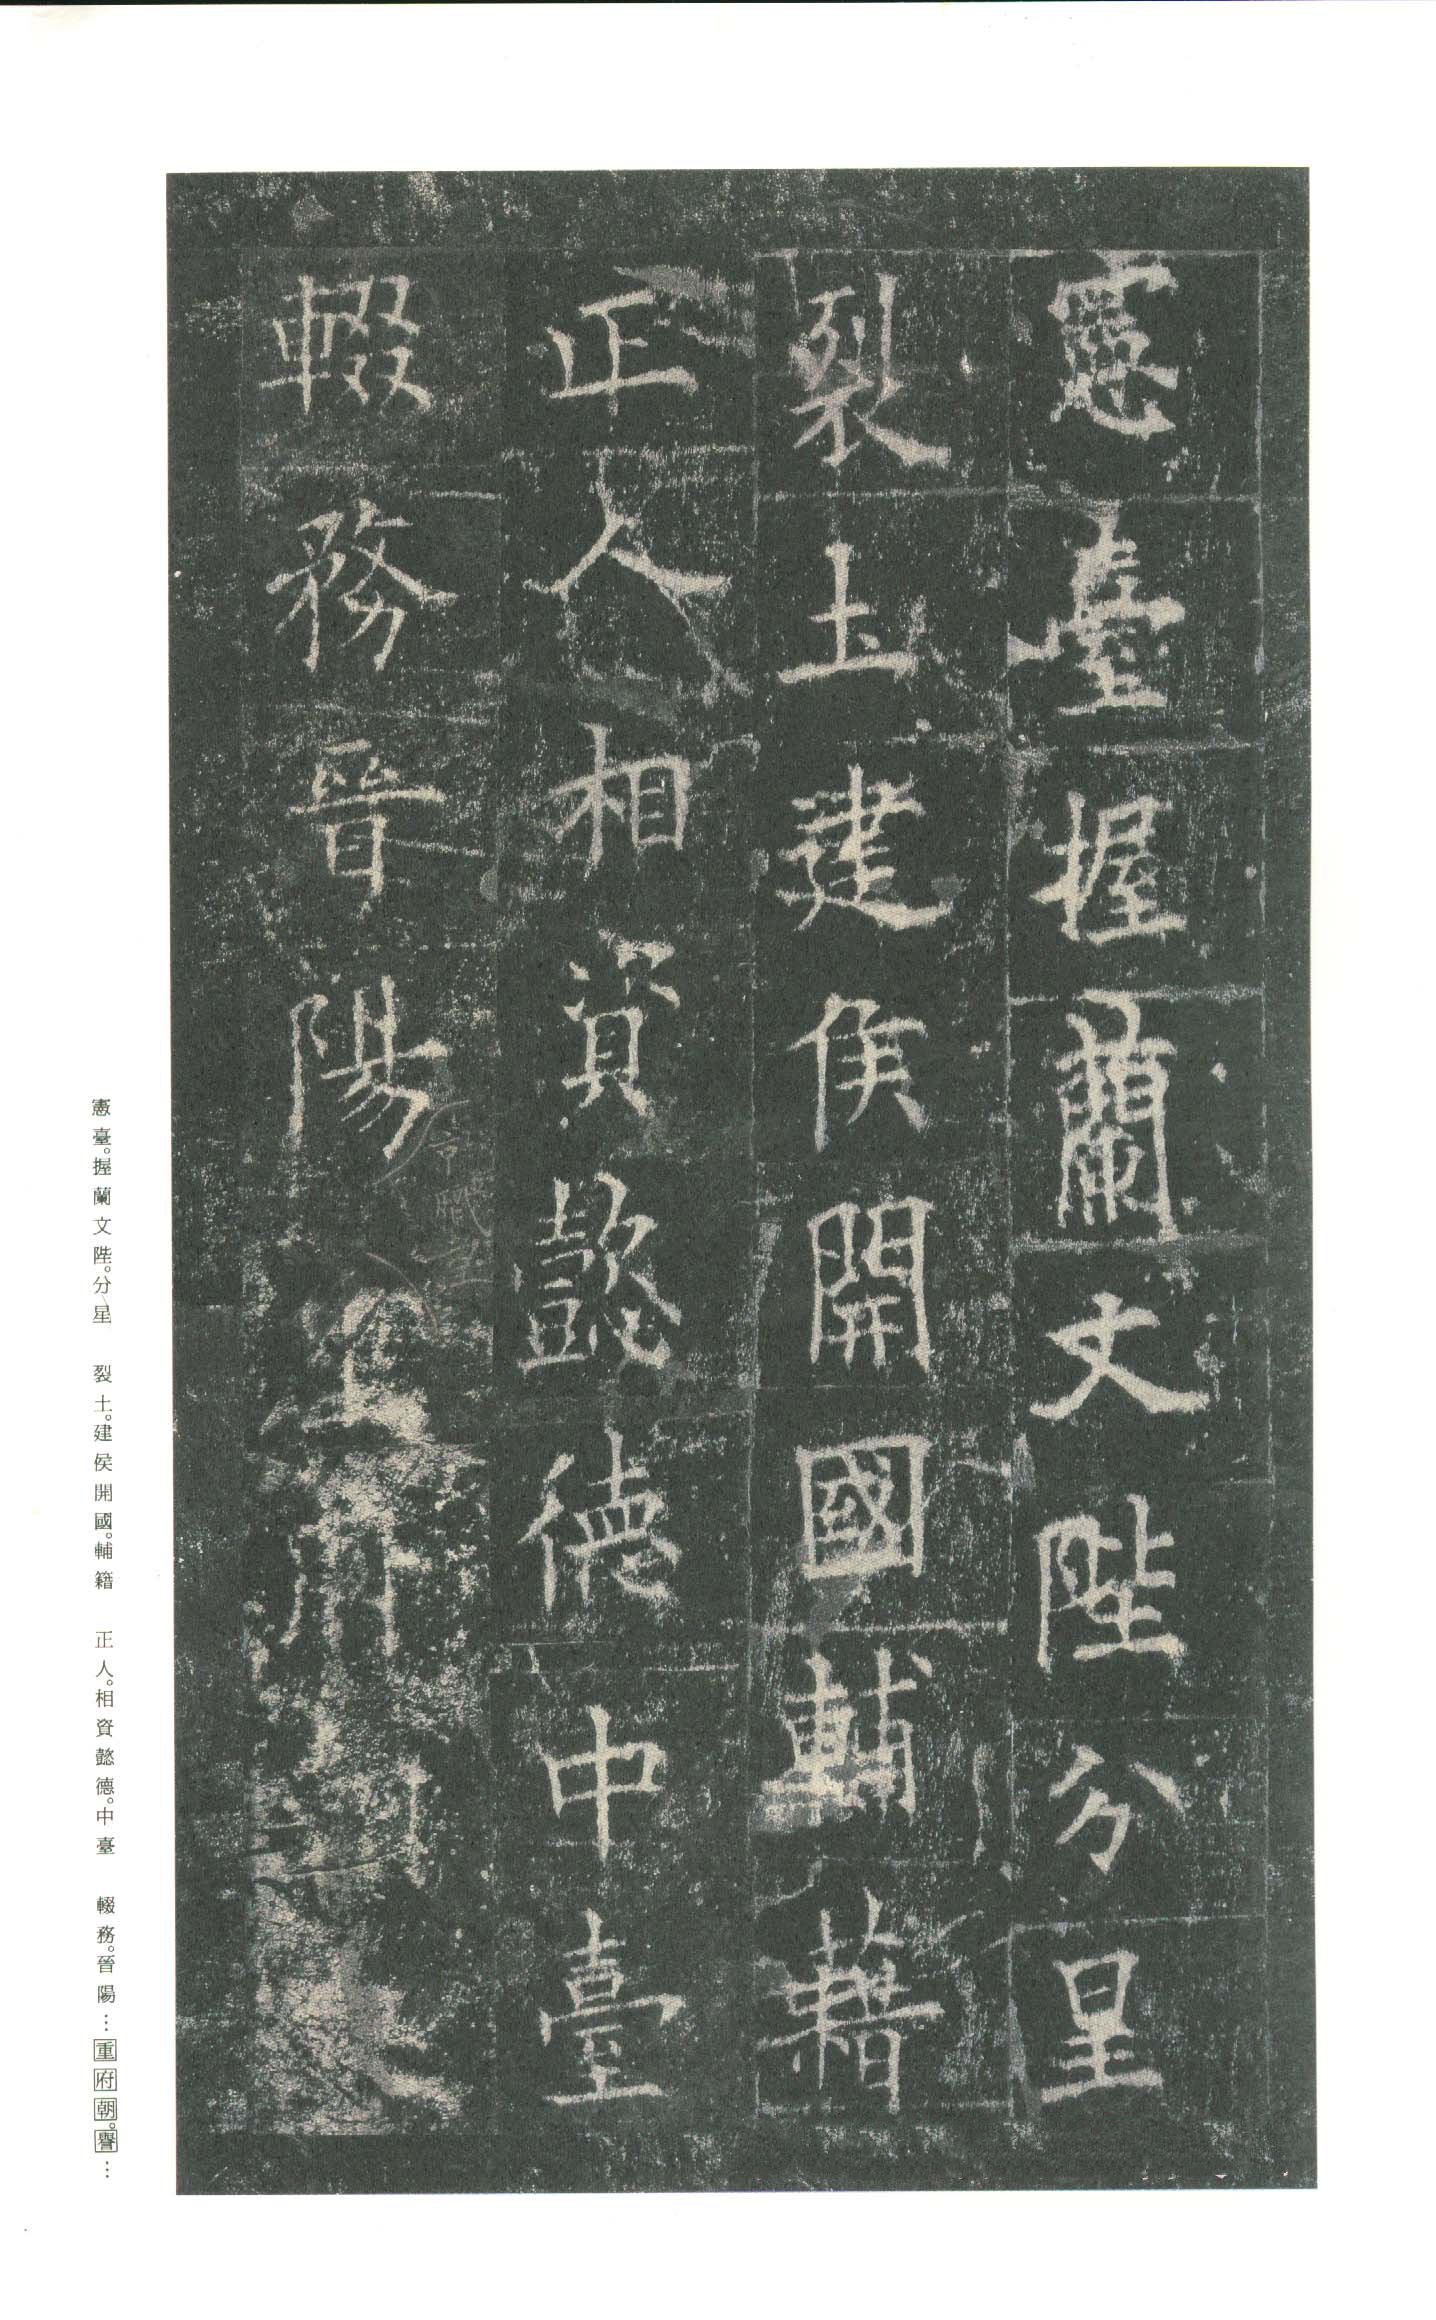 憲臺握蘭文陛分星
裂土建侯開國輔藉
正人相資懿德中臺
輟務晉陽
憲臺。握蘭文陛。分星　裂土。建侯開國。輔籍　正人。相資懿德。中臺　輟務。晉陽…重府朝。譽…